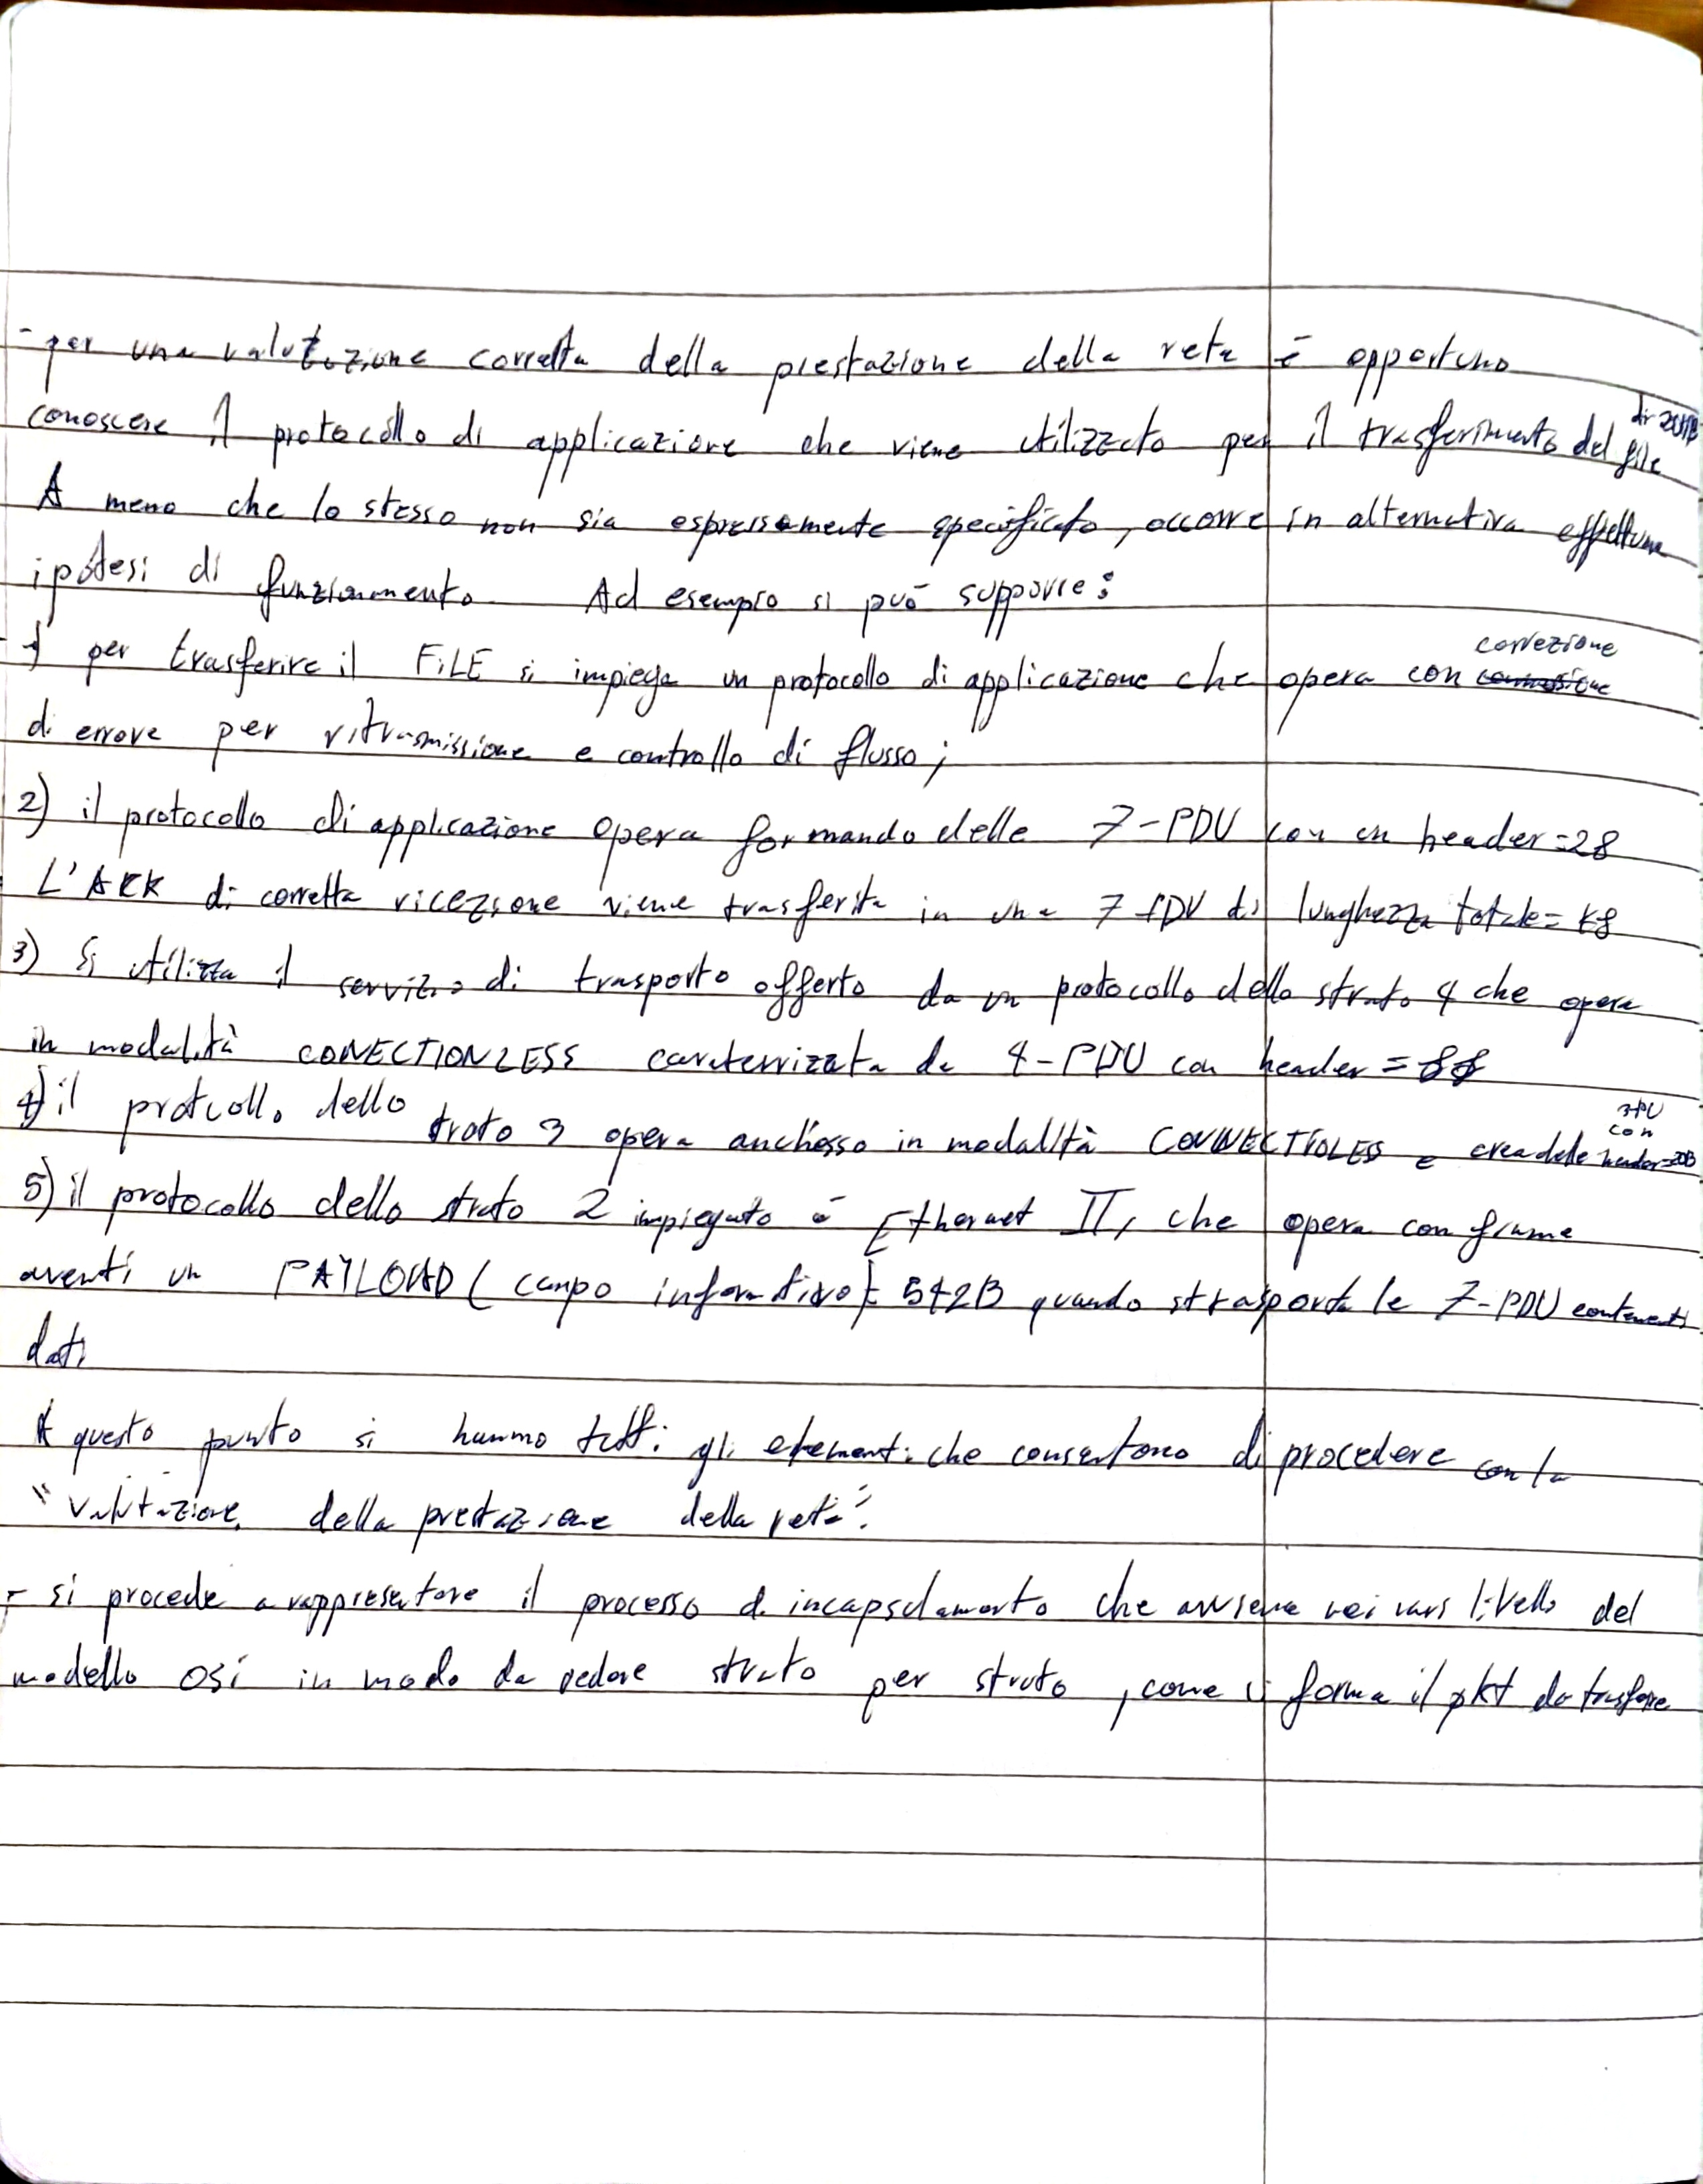 - per una valutazione corretta della prestazione della rete è opportuno
conoscere il protocollo di applicazione che viene utilizzato per il trasferimento del file
A meno che lo stesso non sia espressamente specificato, occorre in alternativa effettuare
ipotesi di funzionamento Ad esempio si può supporre:
1) per trasferire il FiLE si impiega un protocollo di applicazione che opera con correzione
di errore per ritrasmissione e controllo di flusso;
2) il protocollo di applicazione opera formando delle 7-PDU con un header=28
L'ACK di corretta ricezione viene trasferita in una 7 PDU di lunghezza totale=
3) Si utilizza il servizio di trasporto offerto da un protocollo dello strato 4 che opera
in modalità CONECTIONLESS caraterrizzata da 4-PDU con header =
4) il protcollo dello trato 3 opera anch'esso in modalità CONNECTIOLESS e crea delle 3PU con header=20B
5) il protocollo dello strato 2 impiegato è Ethernet II, che opera con frame
aventi un PAYLOAD (campo informativo)= 542B quando strasporta le 7-PDU contenenti
dati
A questo punto si hanno tutti gli elementi che consentono di procedere con la
"valutazione della prestazione della rete".
- si procede a rappresentare il processo di incapsulamento che avviene nei vari livello del
modello OSi in modo da vedere strato per strato, come si forma il pkt da trasferire